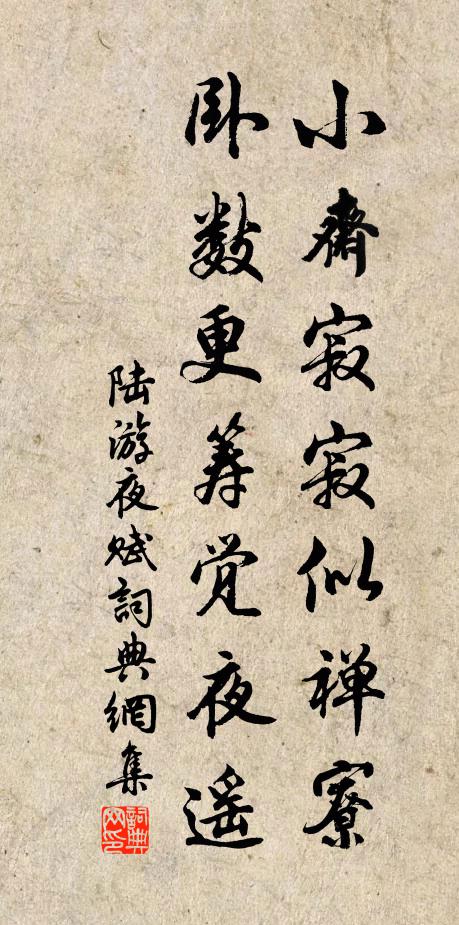 小齋寂寂似禅寮
卧数更筹觉夜遥
陆游夜赋詞典網集
詞典网印